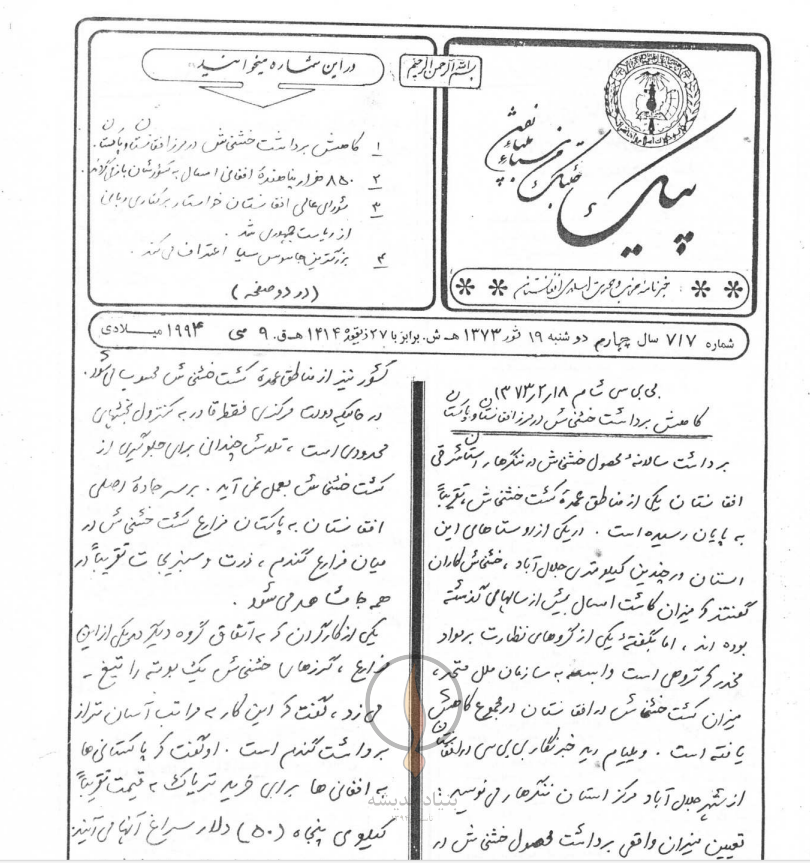 بسم الله الرحمن الرحیم
پیک
خبرنامه حزب وحدت اسلامی افغانستان
در این شماره میخوانید
۱ کاهش برداشت خشخاش در مرز افغانستان و پاکستان.
۲ ۸۵۰ هزار پناهندۀ افغانی امسال به کشورشان باز میگردند.
۳ شورای عالی افغانستان خواستار برکناری ربانی
از ریاست جمهوری شد.
۴ بزرگترین جاسوس سیا اعتراف می کند.
(در دو صفحه)
شماره ۷۱۷ سال چهارم دوشنبه ۱۹ ثور ۱۳۷۳ هـ.ش. برابر با ۲۷ ذیقعده ۱۴۱۴ هـ.ق. ۹ می ۱۹۹۴ میلادی
بی بی سی شام ۱۸ر۲ر۱۳۷۳
کاهش برداشت خشخاش در مرز افغانستان و پاکستان
برداشت سالانۀ محصول خشخاش در ننگرهار استان شرقی
افغانستان یکی از مناطق عمدۀ کشت خشخاش، تقریباً
به پایان رسیده است. در یکی از روستاهای این
استان در چندین کیلومتری جلال آباد، خشخاش کاران
گفتند که میزان کاشت امسال بیش از سالهای گذشته
بوده اند، اما بگفتۀ یکی از گروهای نظارت بر مواد
مخدر که گروهی است وابسته به سازمان ملل متحد،
میزان کشت خشخاش در افغانستان در مجموع کاهش
یافته است. ویلیام رید خبرنگار بی بی سی در افغانستان
از شهر جلال آباد مرکز استان ننگرهار می نویسد:
تعیین میزان واقعی برداشت محصول خشخاش در
کشور نیز از مناطق عمدۀ کشت خشخاش محسوب میشود.
در حالیکه دولت مرکزی فقط قادر به کنترول بخشهای
محدودی است، تلاش چندانی برای جلوگیری از
کشت خشخاش بعمل نمی آید. بر سر جادۀ اصلی
افغانستان به پاکستان مزارع کشت خشخاش در
میان مزارع گندم، ذرت و سبزیجات تقریباً در
همه جا مشاهده می شود.
یکی از کارگران که به اتفاق گروه دیگر در یکی از این
مزارع، گرزهای خشخاش یک بوته را تیغ -
می زد، گفت که این کار به مراتب آسان تر از
برداشت گندم است. او گفت که پاکستانی ها
به افغانی ها برای خرید تریاک به قیمت تقریباً
کیلوی پنجاه (۵۰) دلار سراغ آنها می آیند.
بنیاد اندیشه